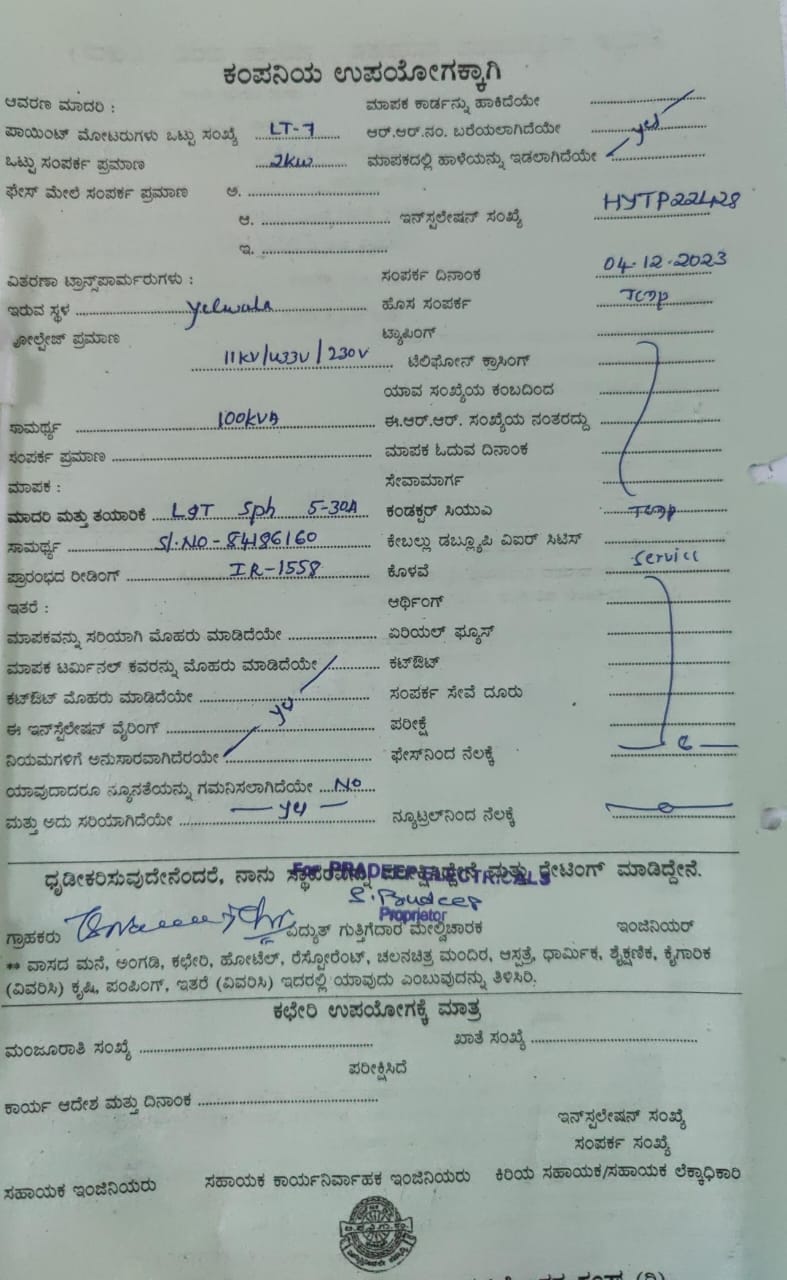 ಕಂಪನಿಯ ಉಪಯೋಗಕ್ಕಾಗಿ
ಆವರಣ ಮಾದರಿ : ಮಾಪಕ ಕಾರ್ಡನ್ನು ಹಾಕಿದೆಯೇ
ಪಾಯಿಂಟ್ ಮೋಟರುಗಳು ಒಟ್ಟು ಸಂಖ್ಯೆ LT-7 ಆರ್.ಆರ್.ನಂ. ಬರೆಯಲಾಗಿದೆಯೇ yes
ಒಟ್ಟು ಸಂಪರ್ಕ ಪ್ರಮಾಣ 2kw ಮಾಪಕದಲ್ಲಿ ಹಾಳೆಯನ್ನು ಇಡಲಾಗಿದೆಯೇ
ಫೇಸ್ ಮೇಲೆ ಸಂಪರ್ಕ ಪ್ರಮಾಣ ಅ.
ಆ. ಇನ್‌ಸ್ಪಲೇಷನ್ ಸಂಖ್ಯೆ HYTP22428
ಇ.
ವಿತರಣಾ ಟ್ರಾನ್ಸ್‌ಪಾರ್ಮರುಗಳು : ಸಂಪರ್ಕ ದಿನಾಂಕ 04-12-2023
ಇರುವ ಸ್ಥಳ Yelwala ಹೊಸ ಸಂಪರ್ಕ Temp
ವೋಲ್ಟೇಜ್ ಪ್ರಮಾಣ ಟ್ಯಾಪಿಂಗ್
11KV/433V/230V ಟೆಲಿಫೋನ್ ಕ್ರಾಸಿಂಗ್
ಯಾವ ಸಂಖ್ಯೆಯ ಕಂಬದಿಂದ
ಸಾಮರ್ಥ್ಯ 100KVA ಈ.ಆರ್.ಆರ್. ಸಂಖ್ಯೆಯ ನಂತರದ್ದು
ಸಂಪರ್ಕ ಪ್ರಮಾಣ ಮಾಪಕ ಓದುವ ದಿನಾಂಕ
ಮಾಪಕ : ಸೇವಾಮಾರ್ಗ
ಮಾದರಿ ಮತ್ತು ತಯಾರಿಕೆ L&T Sph 5-30A ಕಂಡಕ್ಟರ್ ಸಿಯುಎ Temp
ಸಾಮರ್ಥ್ಯ Sl.NO-84186160 ಕೇಬಲ್ಲು ಡಬ್ಲ್ಯೂಪಿ ವಿಐರ್ ಸಿಟಿಸ್
ಪ್ರಾರಂಭದ ರೀಡಿಂಗ್ IR-1558 ಕೊಳವೆ Service
ಇತರೆ : ಆರ್ಥಿಂಗ್
ಮಾಪಕವನ್ನು ಸರಿಯಾಗಿ ಮೊಹರು ಮಾಡಿದೆಯೇ ಏರಿಯಲ್ ಫ್ಯೂಸ್
ಮಾಪಕ ಟರ್ಮಿನಲ್ ಕವರನ್ನು ಮೊಹರು ಮಾಡಿದೆಯೇ ಕಟ್‌ಔಟ್
ಕಟ್‌ಔಟ್ ಮೊಹರು ಮಾಡಿದೆಯೇ ಸಂಪರ್ಕ ಸೇವೆ ದೂರು
ಈ ಇನ್‌ಸ್ಪೆಲೇಷನ್ ವೈರಿಂಗ್ yes ಪರೀಕ್ಷೆ
ನಿಯಮಗಳಿಗೆ ಅನುಸಾರವಾಗಿದೆರಯೇ ಫೇಸ್‌ನಿಂದ ನೆಲಕ್ಕೆ
ಯಾವುದಾದರೂ ನ್ಯೂನತೆಯನ್ನು ಗಮನಿಸಲಾಗಿದೆಯೇ No
ಮತ್ತು ಅದು ಸರಿಯಾಗಿದೆಯೇ yes ನ್ಯೂಟ್ರಲ್‌ನಿಂದ ನೆಲಕ್ಕೆ
ಧೃಡೀಕರಿಸುವುದೇನೆಂದರೆ, ನಾನು ಸ್ಥಾವರವನ್ನು ಪರೀಕ್ಷಿಸಿದ್ದೇನೆ ಮತ್ತು ರೇಟಿಂಗ್ ಮಾಡಿದ್ದೇನೆ.
For PRADEEP ELECTRICALS
S. Pradeep
Proprietor
ಗ್ರಾಹಕರು ವಿದ್ಯುತ್ ಗುತ್ತಿಗೆದಾರ ಮೇಲ್ವಿಚಾರಕ ಇಂಜಿನಿಯರ್
** ವಾಸದ ಮನೆ, ಅಂಗಡಿ, ಕಛೇರಿ, ಹೋಟೆಲ್, ರೆಸ್ಟೋರೆಂಟ್, ಚಲನಚಿತ್ರ ಮಂದಿರ, ಆಸ್ಪತ್ರೆ, ಧಾರ್ಮಿಕ, ಶೈಕ್ಷಣಿಕ, ಕೈಗಾರಿಕ
(ವಿವರಿಸಿ) ಕೃಷಿ, ಪಂಪಿಂಗ್, ಇತರೆ (ವಿವರಿಸಿ) ಇದರಲ್ಲಿ ಯಾವುದು ಎಂಬುವುದನ್ನು ತಿಳಿಸಿರಿ.
ಕಛೇರಿ ಉಪಯೋಗಕ್ಕೆ ಮಾತ್ರ
ಮಂಜೂರಾತಿ ಸಂಖ್ಯೆ ಖಾತೆ ಸಂಖ್ಯೆ
ಪರೀಕ್ಷಿಸಿದೆ
ಕಾರ್ಯ ಆದೇಶ ಮತ್ತು ದಿನಾಂಕ
ಇನ್‌ಸ್ಪಲೇಷನ್ ಸಂಖ್ಯೆ
ಸಂಪರ್ಕ ಸಂಖ್ಯೆ
ಸಹಾಯಕ ಇಂಜಿನಿಯರು ಸಹಾಯಕ ಕಾರ್ಯನಿರ್ವಾಹಕ ಇಂಜಿನಿಯರು ಕಿರಿಯ ಸಹಾಯಕ/ಸಹಾಯಕ ಲೆಕ್ಕಾಧಿಕಾರಿ